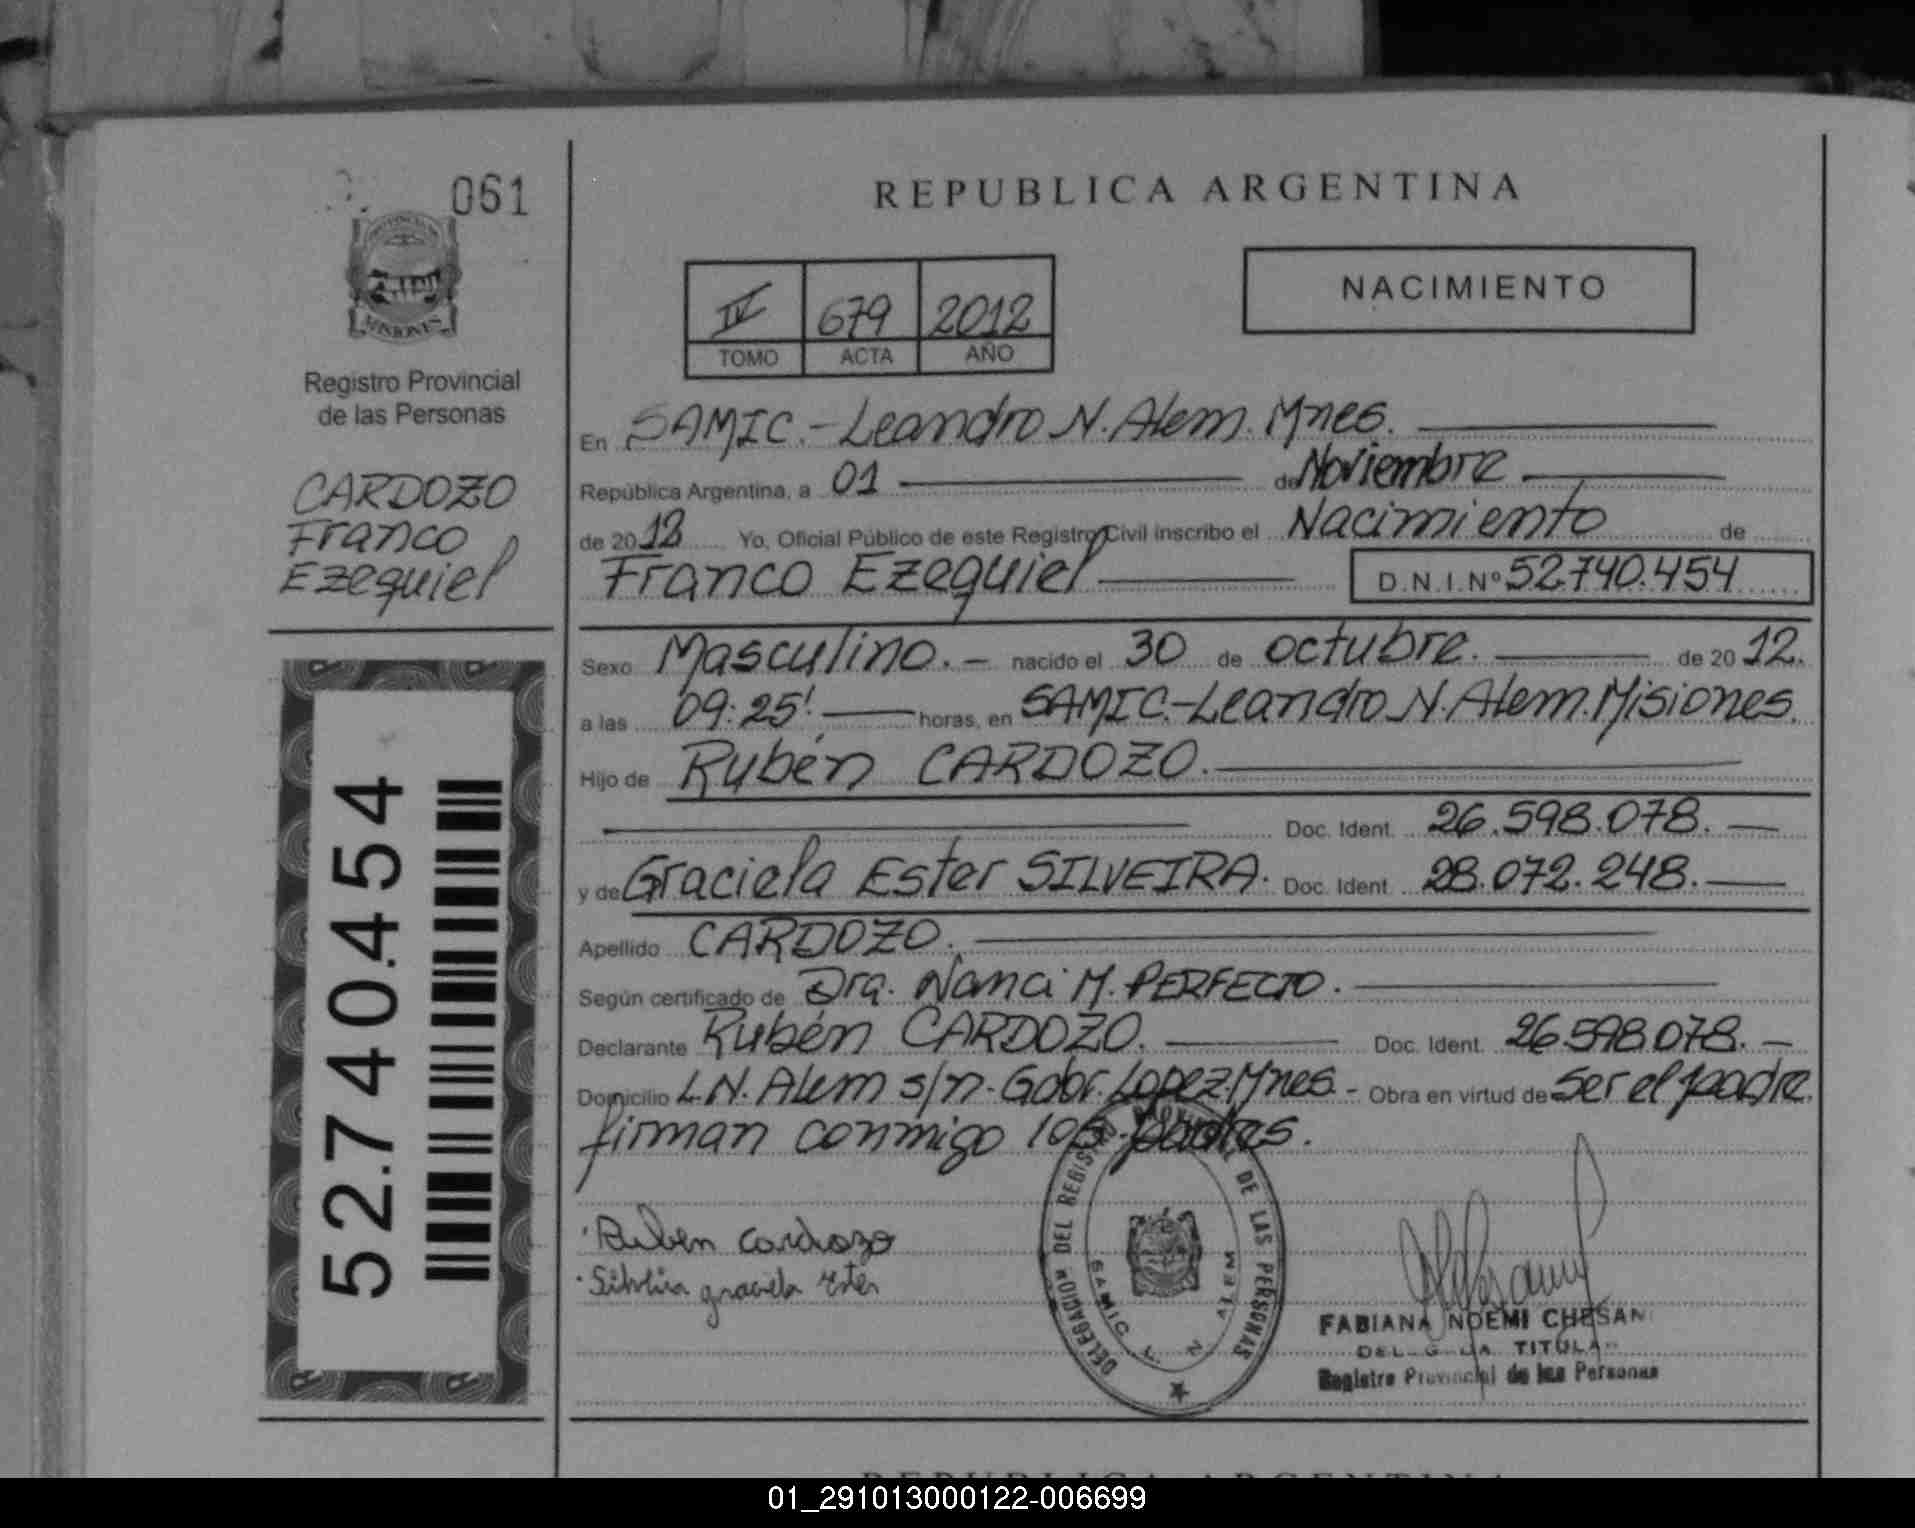 061
MISIONES
Registro Provincial
de las Personas
CARDOZO
Franco
Ezequiel
52.740.454
REPUBLICA ARGENTINA
IV 679 2012
TOMO ACTA AÑO
NACIMIENTO
En SAMIC.-Leandro N. Alem. Mnes.
República Argentina, a 01 de Noviembre
de 2012 Yo, Oficial Público de este Registro Civil inscribo el Nacimiento de
Franco Ezequiel D.N.I.Nº 52.740.454
Sexo Masculino.- nacido el 30 de octubre. de 2012.
a las 09:25'. horas, en SAMIC.-Leandro N. Alem. Misiones.
Hijo de Rubén CARDOZO.
Doc. Ident. 26.598.078.
y de Graciela Ester SILVEIRA. Doc. Ident. 28.072.248.
Apellido CARDOZO.
Según certificado de Dra. Nanci M. PERFECTO.
Declarante Rubén CARDOZO. Doc. Ident. 26.598.078.
Domicilio L.N. Alem s/n. Gdor. Lopez. Mnes.- Obra en virtud de ser el padre.
firman conmigo los padres.
Ruben Cardozo
graciela Ester
DELEGACION DEL REGISTRO PROVINCIAL DE LAS PERSONAS
SAMIC L. N. ALEM
FABIANA NOEMI CHESANI
TITULAR
Registro Provincial de las Personas
REPUBLICA ARGENTINA
01_291013000122-006699